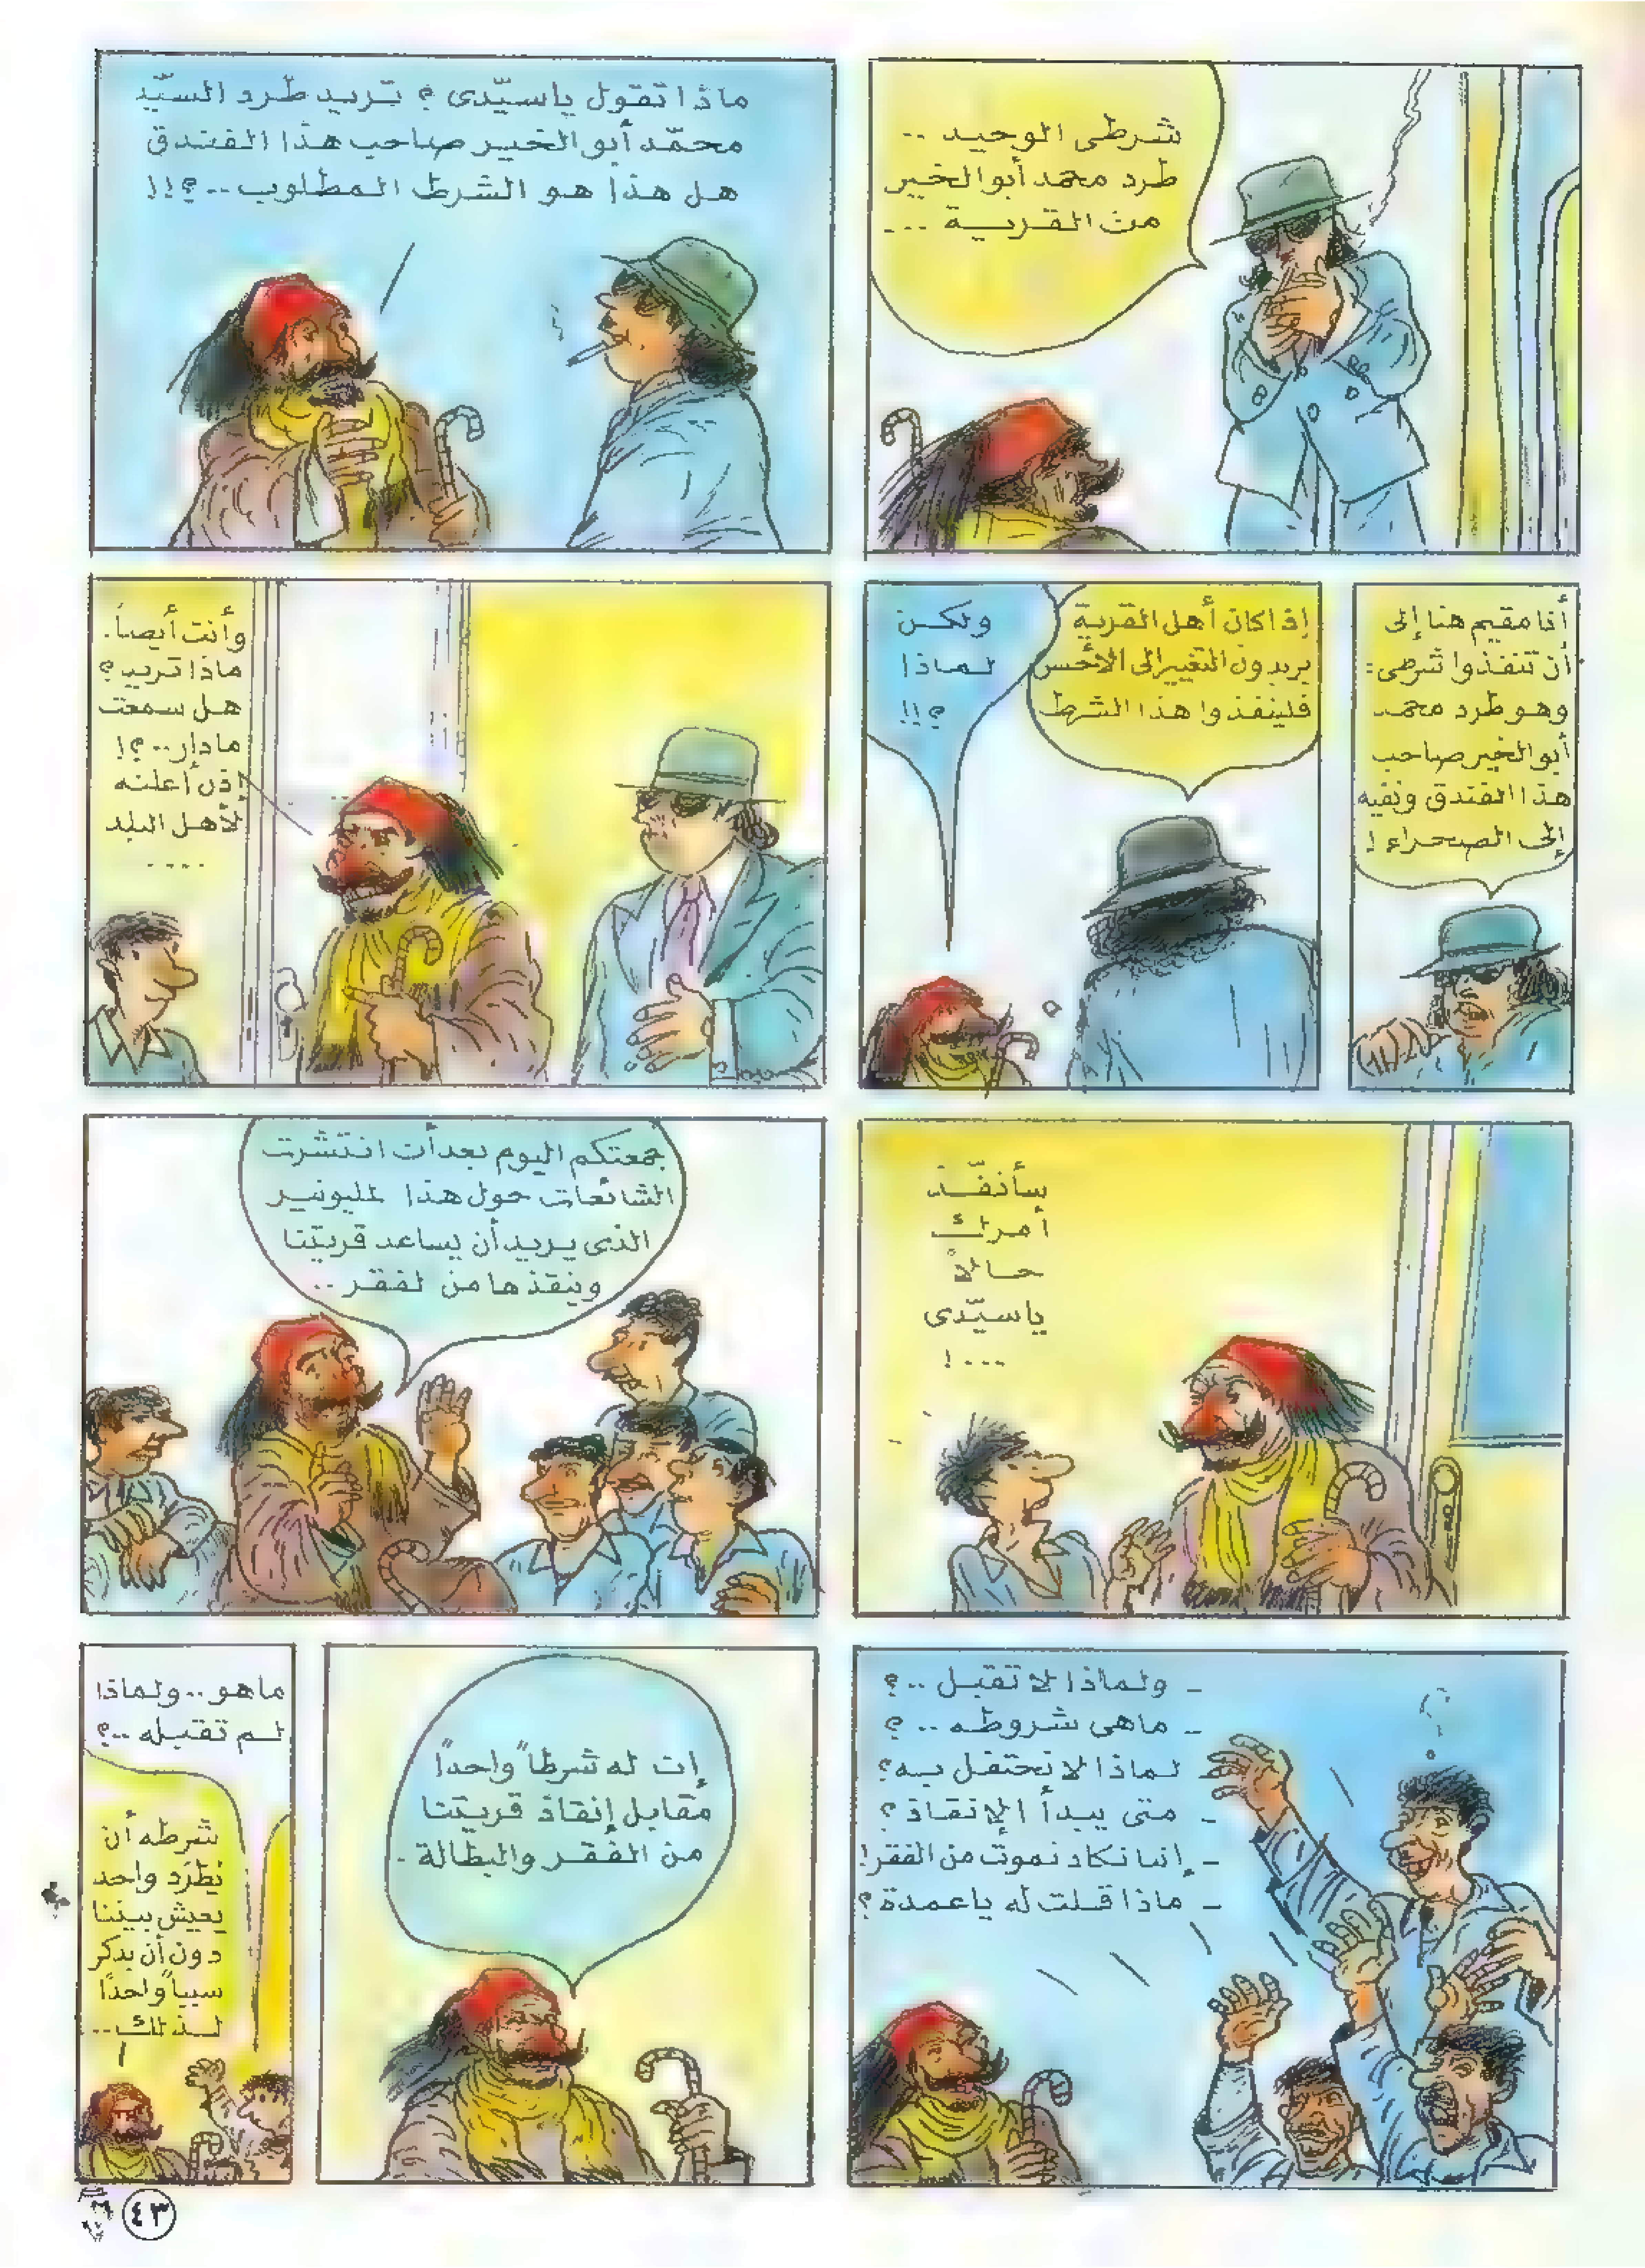 شرطى الوحيد ..
طرد محمد أبو الخير
من القرية ...
ماذا تقول ياسيّدى ؟ تريد طرد السيّد
محمّد أبو الخير صاحب هذا الفندق
هل هذا هو الشرط المطلوب..؟!!
أنا مقيم هنا إلى
أن تنفذوا شرطى :
وهو طرد محمد
أبو الخير صاحب
هذا الفندق ونفيه
إلى الصحراء !
إذا كان أهل القرية
يريدون التغيير إلى الأحسن
فلينفذوا هذا الشرط
ولكن
لماذا
؟!!
وأنت أيضاً.
ماذا تريد ؟
هل سمعت
مادار..؟!
إذن أعلنه
لأهل البلد
....
سأنفّذ
أمرك
حالاً
ياسيّدى
...!
جمعتكم اليوم بعد أن انتشرت
الشائعات حول هذا المليونير
الذى يريد أن يساعد قريتنا
وينقذها من الفقر ..
ـ ولماذا لا تقبل ..؟
ـ ماهى شروطه .. ؟
لماذا لا نحتفل به ؟
ـ متى يبدأ الإنقاذ ؟
ـ إننا نكاد نموت من الفقر!
ـ ماذا قلت له ياعمدة ؟
إن له شرطاً واحداً
مقابل إنقاذ قريتنا
من الفقر والبطالة .
ماهو .. ولماذا
لم تقبله ..؟
شرطه أن
نطرد واحد
يعيش بيننا
دون أن يذكر
سبباً واحداً
لذلك ..
٤٣